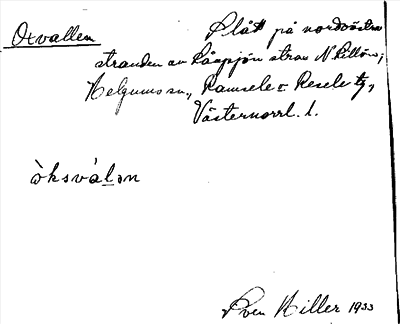 Oxvallen
Plått på nordvästra
stranden av Låupsjön, utan N. Lillön,
Helgums sn, Ramsele o Resele tg,
Västernorrl. l.
òksvál̲ən
Sven Hiller 1933